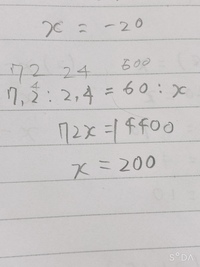 x = -20
72 24 600
7,2 : 2,4 = 60 : x
72x = 14400
x = 200